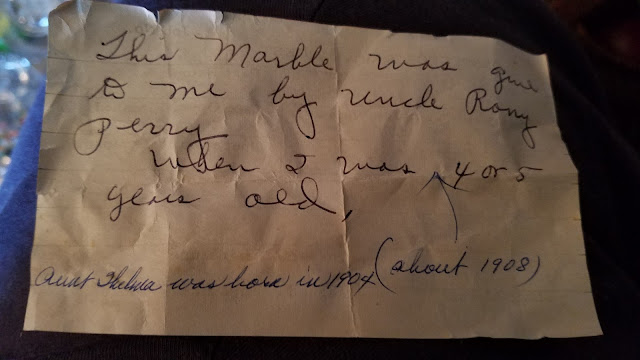 This Marble was give
to me by uncle Rony
perry
when I was 4 or 5
years old,
(about 1908)
Aunt Thelma was born in 1904